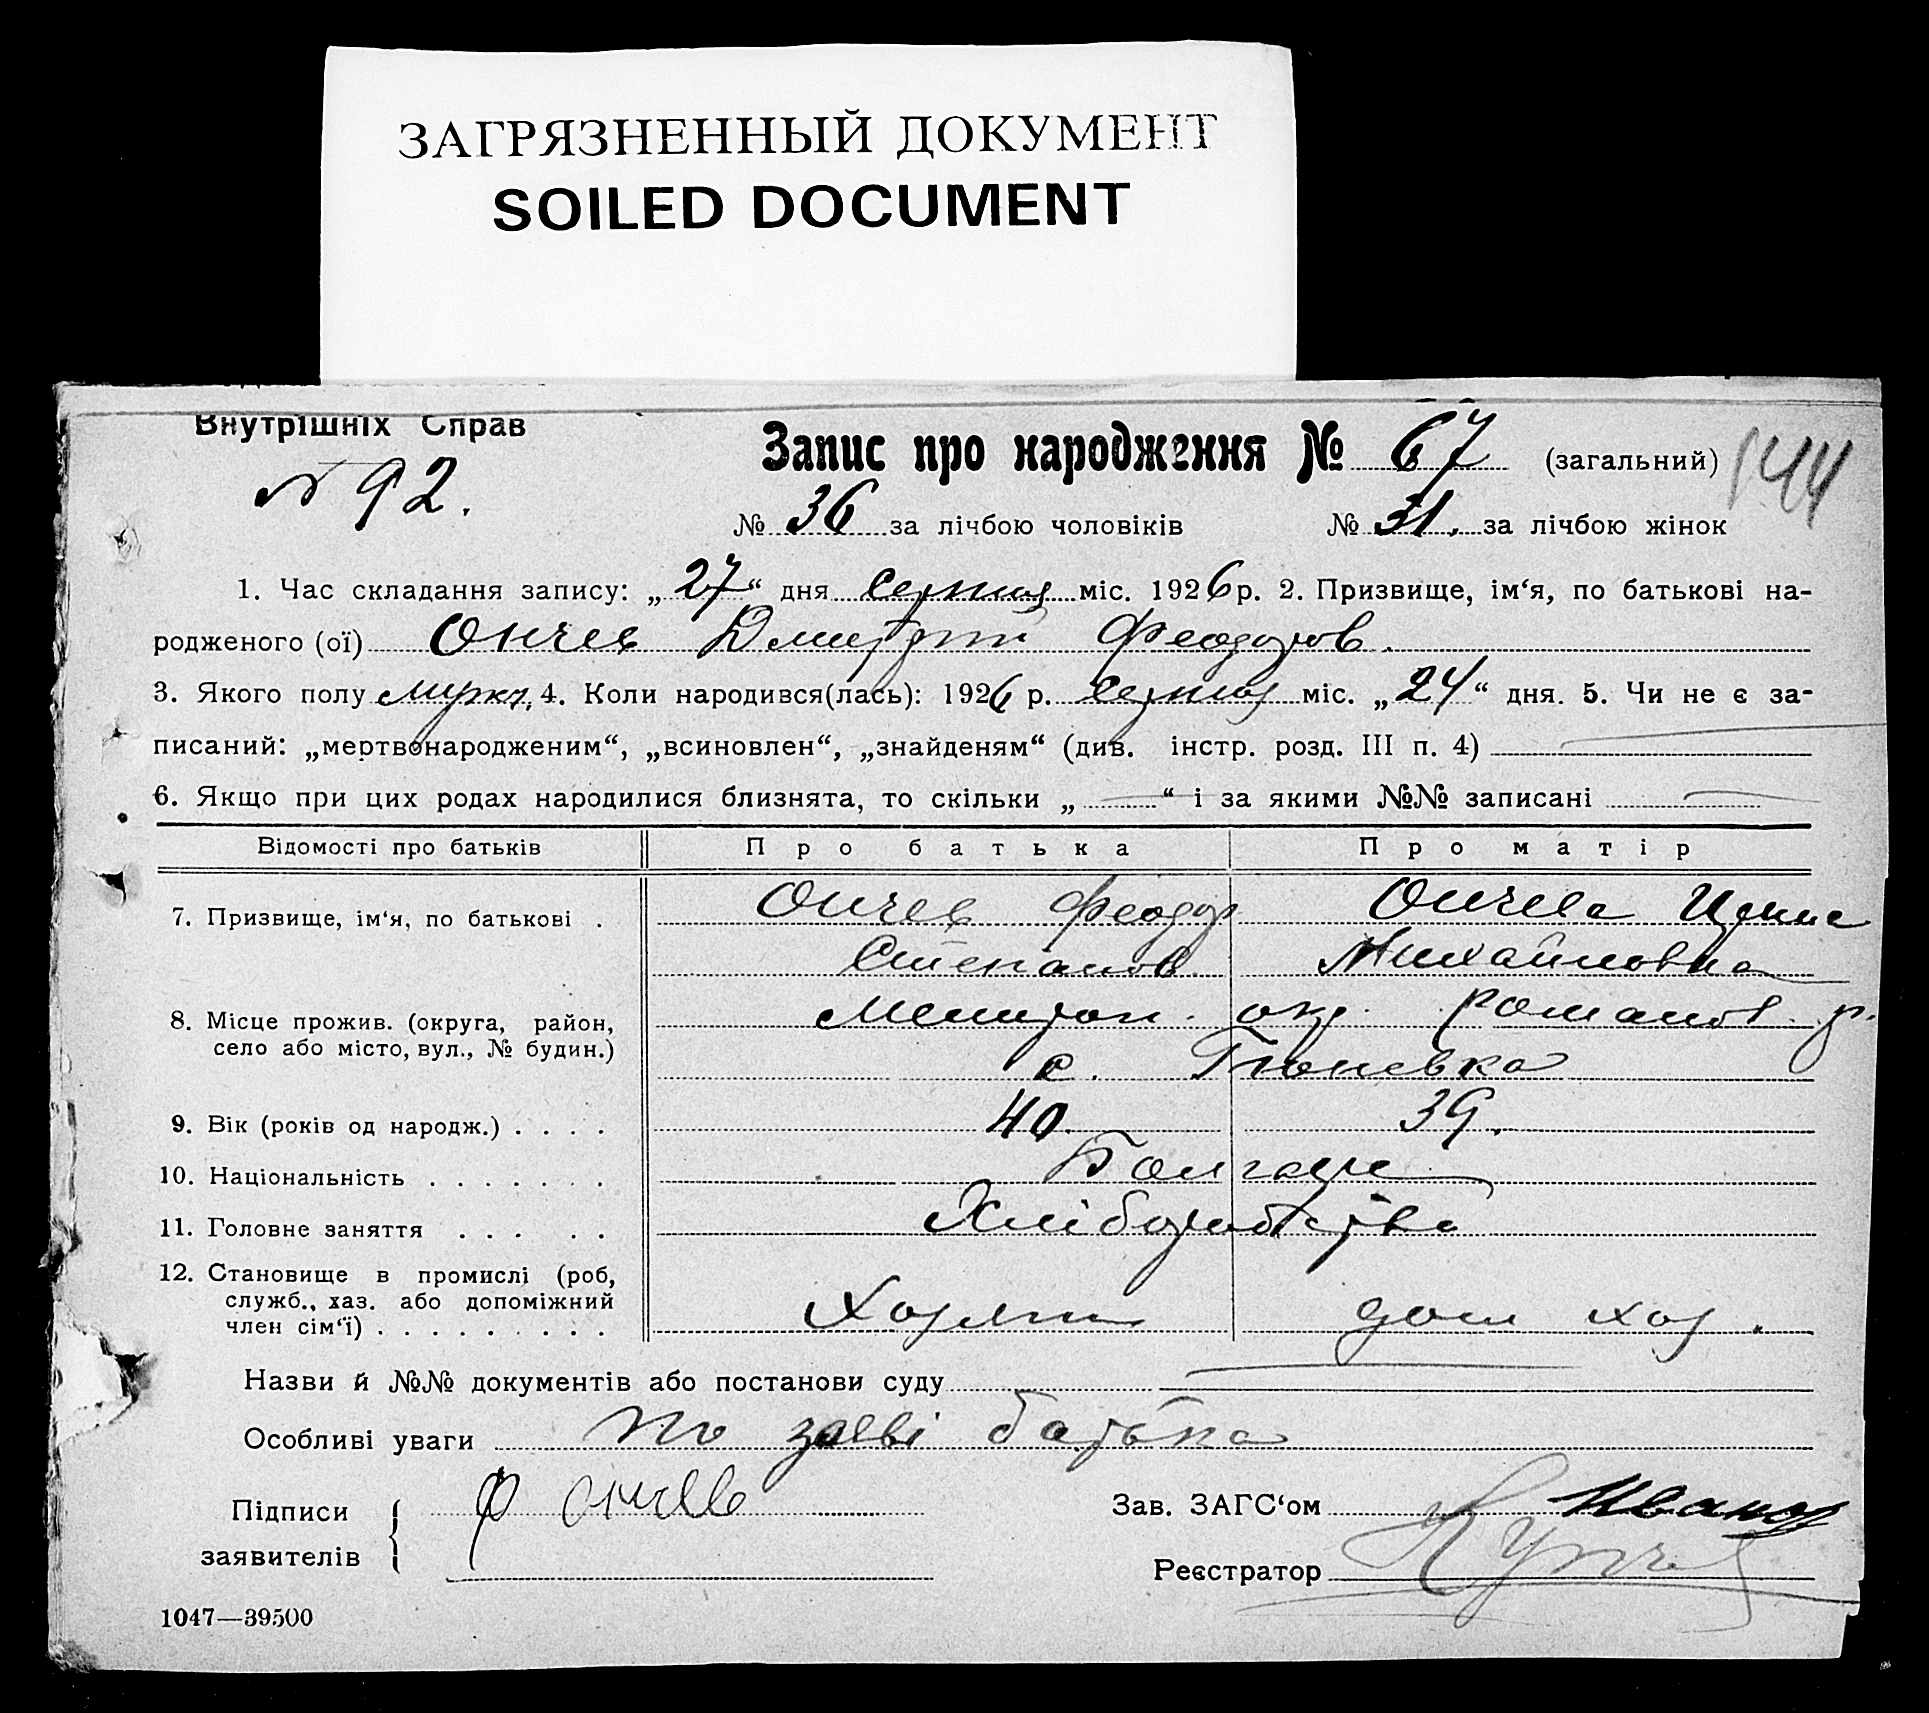 ЗАГРЯЗНЕННЫЙ ДОКУМЕНТ
SOILED DOCUMENT
Внутрішніх Справ
Запис про народження № 67 (загальний) 144
№ 92.
№ 36 за лічбою чоловіків № 31. за лічбою жінок
1. Час складання запису: „27“ дня серпня міс. 1926 р. 2. Призвище, ім‘я, по батькові на-
родженого (ої) Ончев Дмитрий Феодоров.
3. Якого полу мужч. 4. Коли народився(лась): 1926 р. серпня міс. „24“ дня. 5. Чи не є за-
писаний: „мертвонародженим“, „всиновлен“, „знайденям“ (див. інстр. розд. III п. 4)
6. Якщо при цих родах народилися близнята, то скільки „ “ і за якими №№ записані
Відомості про батьків Про батька Про матір
7. Призвище, ім‘я, по батькові . Ончев Феодор Ончева
Степанов Михайловна
8. Місце прожив. (округа, район, Мелитоп. окр. Романов. р.
село або місто, вул., № будин.) с. Гюневка
9. Вік (років од народж.) . . . . 40. 39.
10. Національність . . . . . . . Болгаре
11. Головне заняття . . . . . Хліборобство
12. Становище в промислі (роб,
служб., хаз. або допоміжний
член сім‘ї) . . . . . . . . . Хозяин дом хоз.
Назви й №№ документів або постанови суду
Особливі уваги по заяві батька
Підписи Ф Ончев Зав. ЗАГС‘ом
заявителів Реєстратор
1047—39500